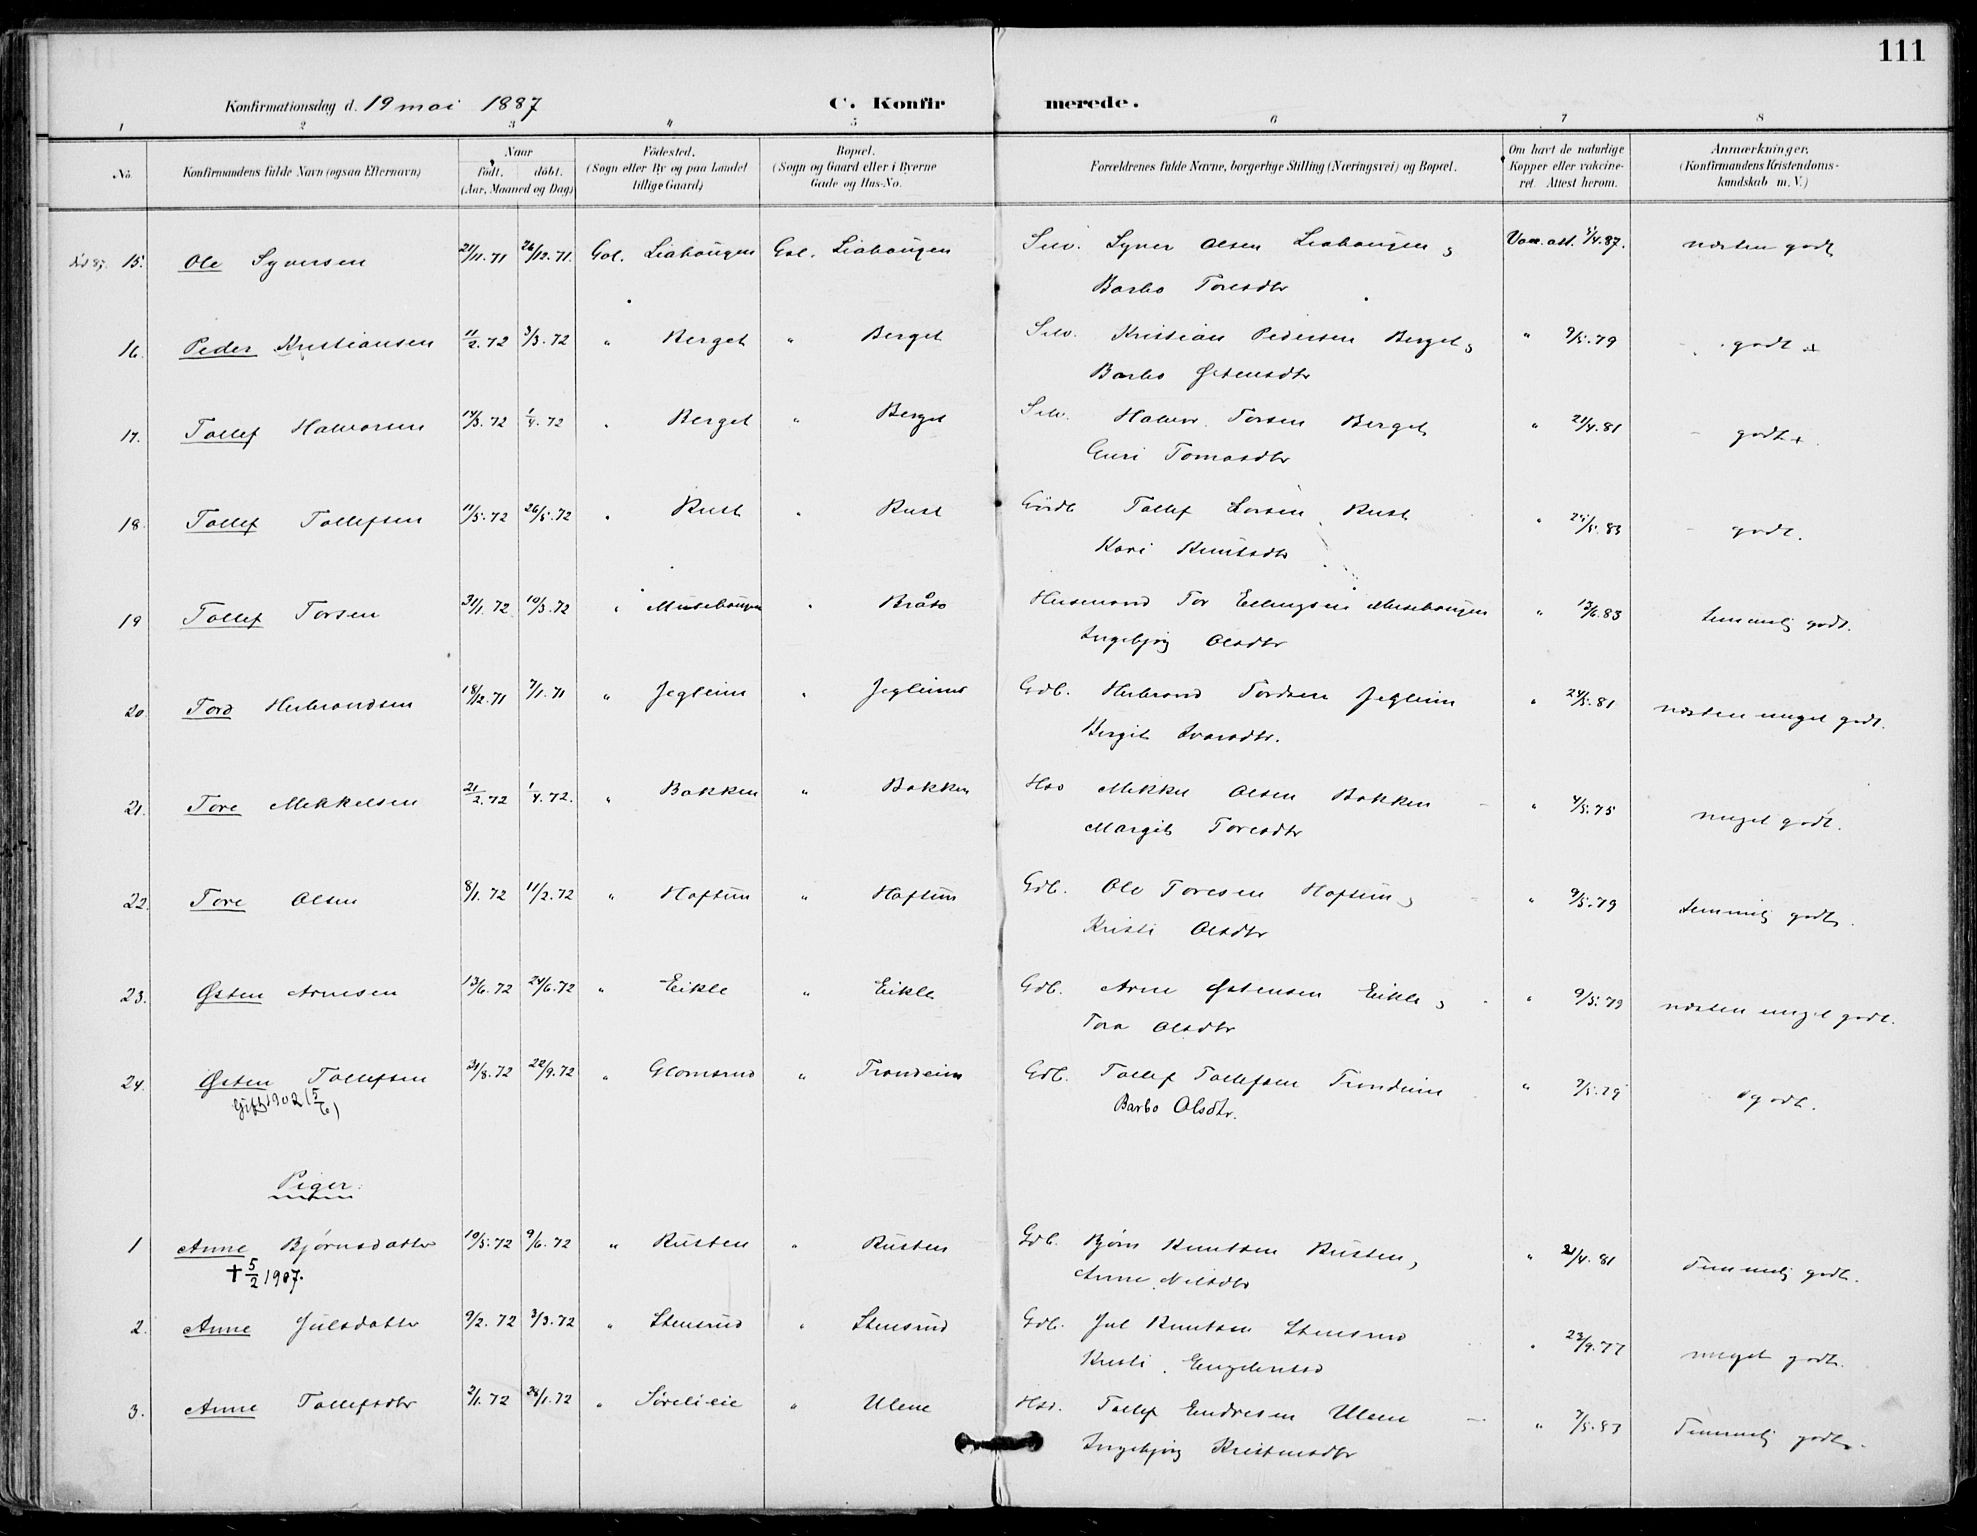 111
Konfirmationsdag d. 19 mai 1887 C. Konfirmerede.
1 2 3 4 5 6 7 8
No. Konfirmandens fulde Navn (ogsaa Efternavn) Naar født. døbt. (Aar, Maaned og Dag) Fødested. (Sogn eller By og paa Landet tillige Gaard) Bopæl. (Sogn og Gaard eller i Byerne Gade og Hus-No. Forældrenes fulde Navne, borgerlige Stilling (Næringsvei) og Bopæl. Om havt de naturlige Kopper eller vakcineret. Attest herom. Anmærkninger. (Konfirmandens Kristendomskundskab m. V.)
15. Ole Syversen 21/11.71 26/12.71. Gol. Liahaugen Gol. Liahaugen Selv. Syver Olsen Liahaugen, Vac. att. /4.87. næsten godt
Barbo Toresdtr
16. Peder Kristiansen 11/2.72 3/3.72 " Berget " Berget Selv. Kristian Pedersen Berget, " 9/5.79 godt +
Barbo Østensdtr
17. Tollef Halvorsen 14/3.72 1/4.72 " Berget " Berget Selv. Halvor Torsen Berget " 21/4.81 godt +.
Guri Tomasdtr
18. Tollef Tollefsen 11/5.72 26/5.72 " Rust " Rust Gårdb. Tollef Larsen Rust " 25/5.83 godt.
Kari Knutsdtr
19 Tollef Torsen 31/1.72 10/3.72 " Musehaugen " Bråto Husmand Tor Ellingsen Musehaugen " 13/6.83 temmelig godt.
Ingebjørg Olsdtr
20 Tord Herbrandsen 18/12.71 7/1.71 " Jegleim " Jegleim Gdb. Herbrand Tordsen Jegleim " 24/5.81 næsten meget godt.
Birgit Ivarsdtr.
21. Tore Mikkelsen 21/2.72 1/4.72. " Bakken " Bakken Hus Mikkel Olsen Bakken " 4/5.75 meget godt.
Margit Toresdtr
22. Tore Olsen 8/1.72 11/2.72 " Haftun " Haftun Gdb. Ole Toresen Haftun, " 9/5.79 temmelig godt.
Kristi Olsdtr
23. Østen Arnesen 13/6.72 24/6.72 " Eikle " Eikle Gdb. Arne Østensen Eikle, " 9/5.79 næsten meget godt.
Tora Olsdtr
24. Østen Tollefsen 31/8.72 22/9.72 " Glomsrud " Trondeim Gdb. Tollef Tollefsen Trondeim " 9/5.79 godt.
Gift 1902 (5/6) Barbo Olsdtr.
Piger:
1 Anne Bjørnsdatter 10/5.72 9/6.72 " Rusten " Rusten Gdb. Bjørn Knutsen Rusten, " 21/4.81 Temmelig godt.
+ 5/2 1907. Anne Nilsdtr
2. Anne Julsdatter 9/2.72 3/3.72 " Stensrud " Stensrud Gdb. Jul Knutsen Stensrud " 23/9.77 meget godt.
Kristi
3. Anne Tollefsdtr 2/1.72 28/1.72 " Sørelieie " Ulene Hus. Tollef Endresen Ulene " 7/5.83 Temmelig godt.
Ingebjørg Kristensdtr